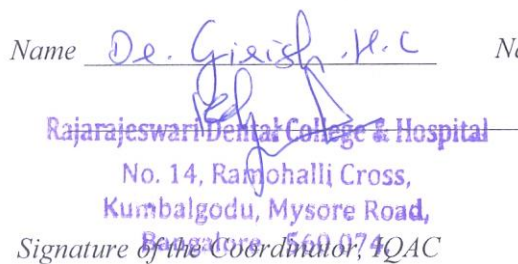 Name Dr. Girish .H.C Na
Rajarajeswari Dental College & Hospital
No. 14, Ramohalli Cross,
Kumbalgodu, Mysore Road,
Bangalore - 560 074.
Signature of the Coordinator, IQAC